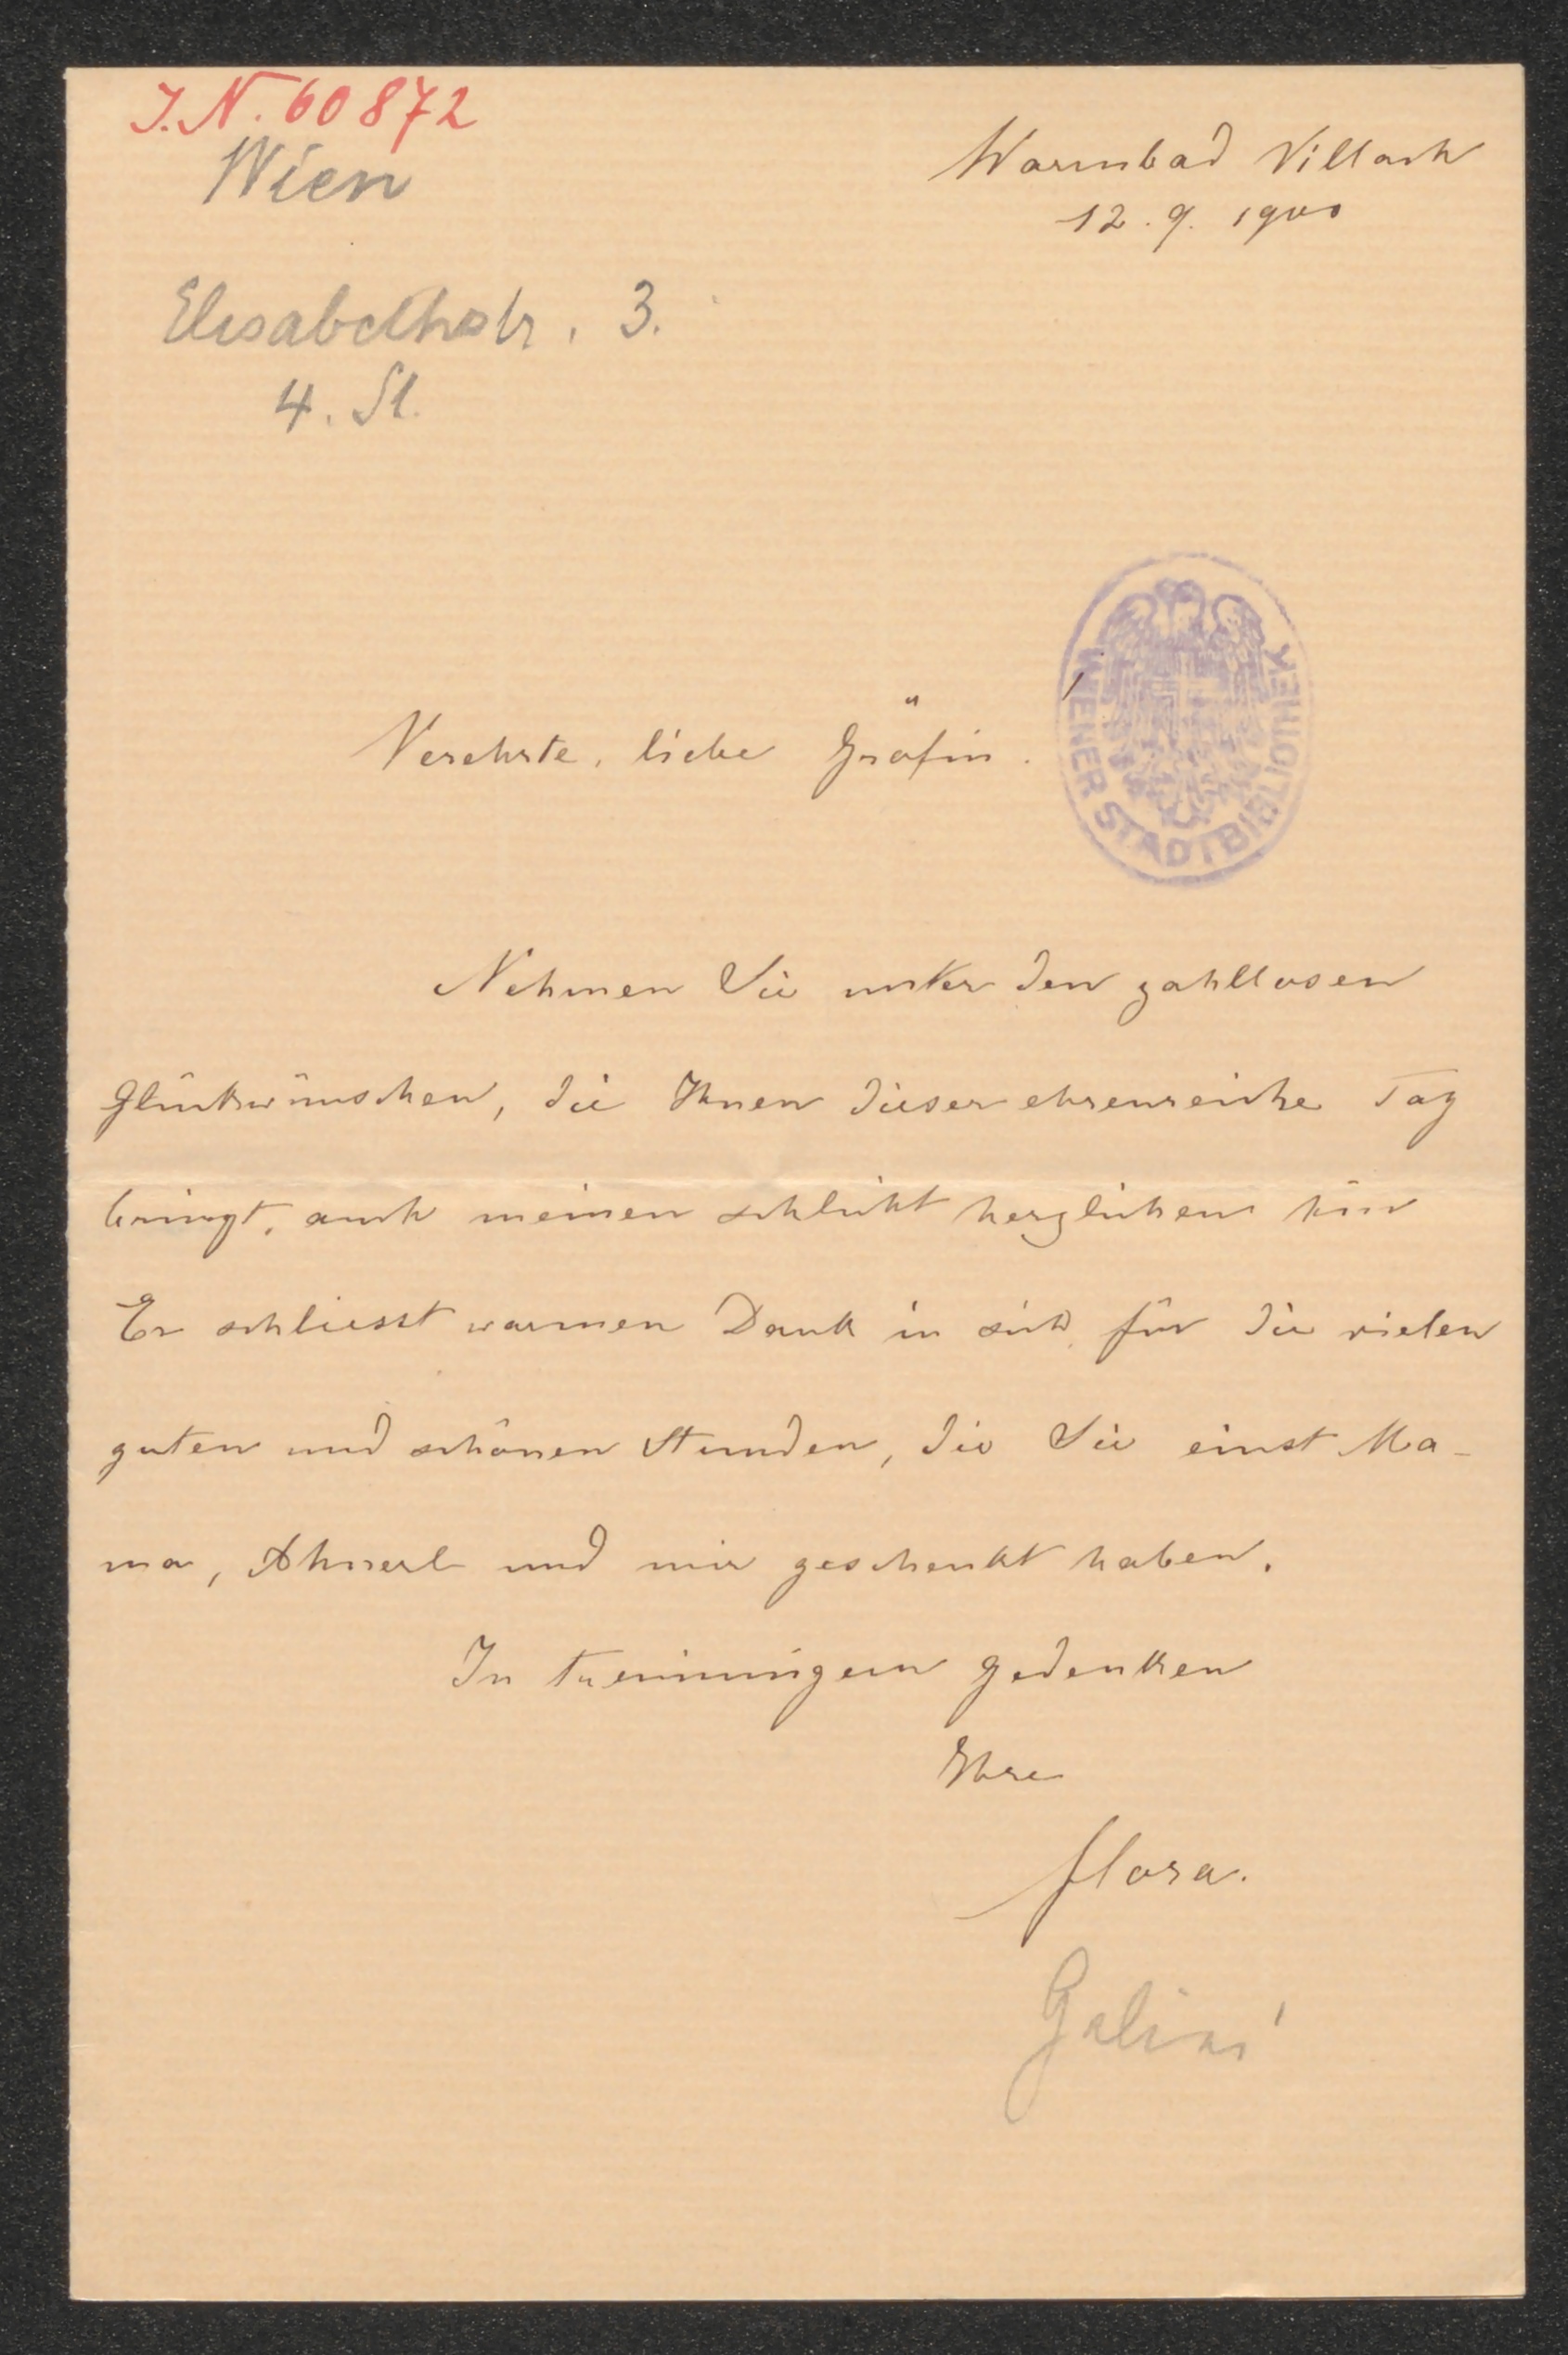 J.N. 60872
Wien
Warmbad Villach
12. 9. 1900
Elisabethstr. 3.
4. St.
WIENER STADTBIBLIOTHEK
Verehrte, liebe Gräfin.
Nehmen Sie unter den zahllosen
Glückwünschen, die Ihnen dieser ehrenreiche Tag
bringt, auch meinen schlicht herzlichen hin
Er schliesst warmen Dank in sich für die vielen
guten und schönen Stunden, die Sie einst Ma-
ma, und mir geschenkt haben.
In treuinnigem Gedenken
Ihre
Flora.